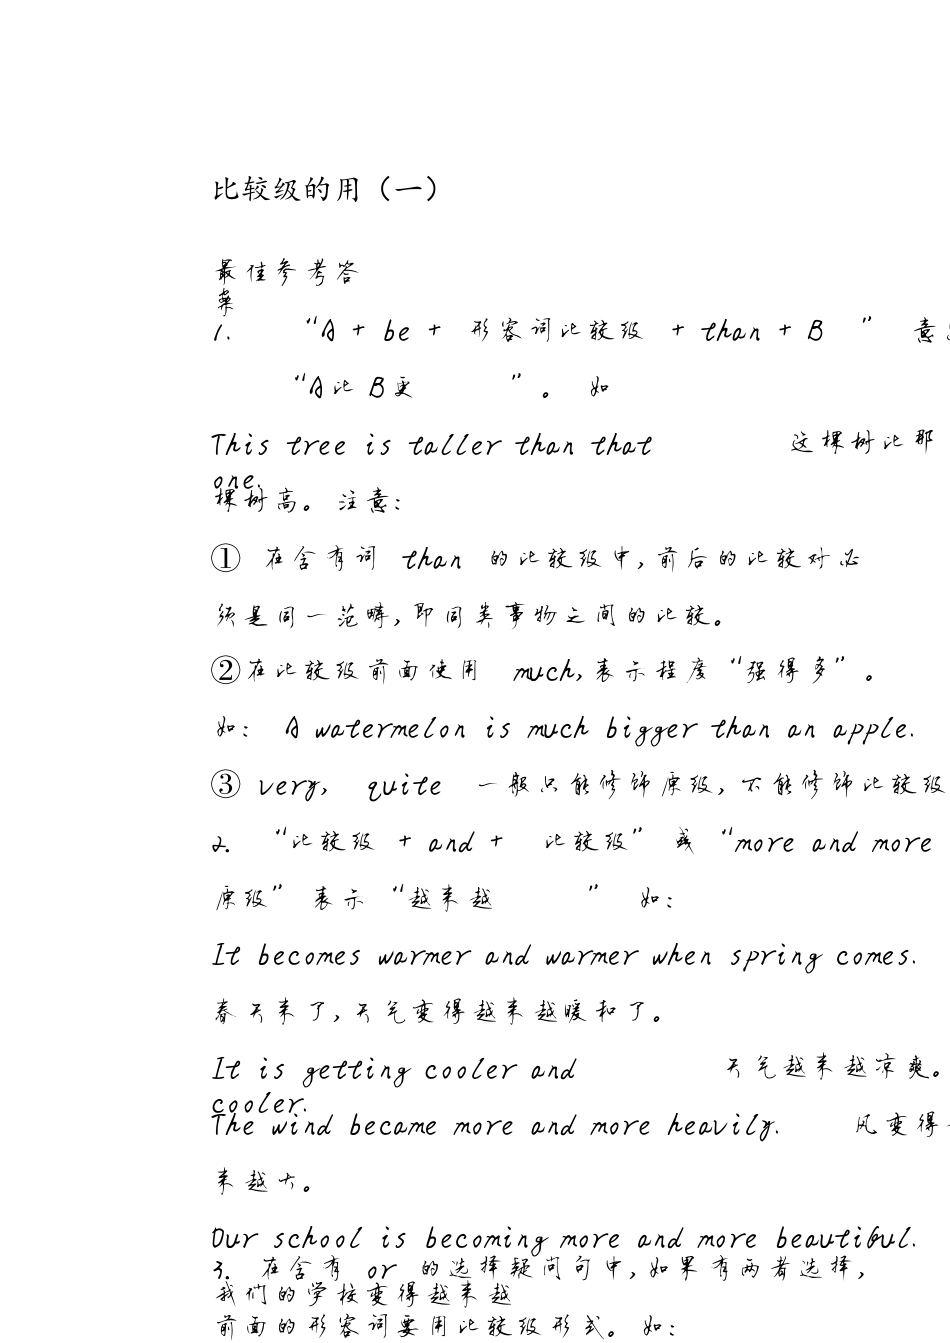 比较级的用（一）
最佳参考答
案
1. “A + be + 形容词比较级 + than + B ” 意
“A比 B更 ”。 如
This tree is taller than that 这棵树比那
one.
棵树高。 注意：
① 在含有词 than 的比较级中，前后的比较对必
须是同一范畴，即同类事物之间的比较。
②在比较级前面使用 much，表示程度“强得多”。
如： A watermelon is much bigger than an apple.
③ very， quite 一般只能修饰原级，不能修饰比较级
2. “比较级 + and + 比较级” 或 “more and more
原级” 表示 “越来越 ” 如：
It becomes warmer and warmer when spring comes.
春天来了，天气变得越来越暖和了。
It is getting cooler and 天气越来越凉爽。
cooler.
The wind became more and more heavily. 风变得
来越大。
Our school is becoming more and more beautiful.
3. 在含有 or 的选择疑问句中，如果有两者选择，
我们的学校变得越来越
前面的形容词要用比较级形式。 如：